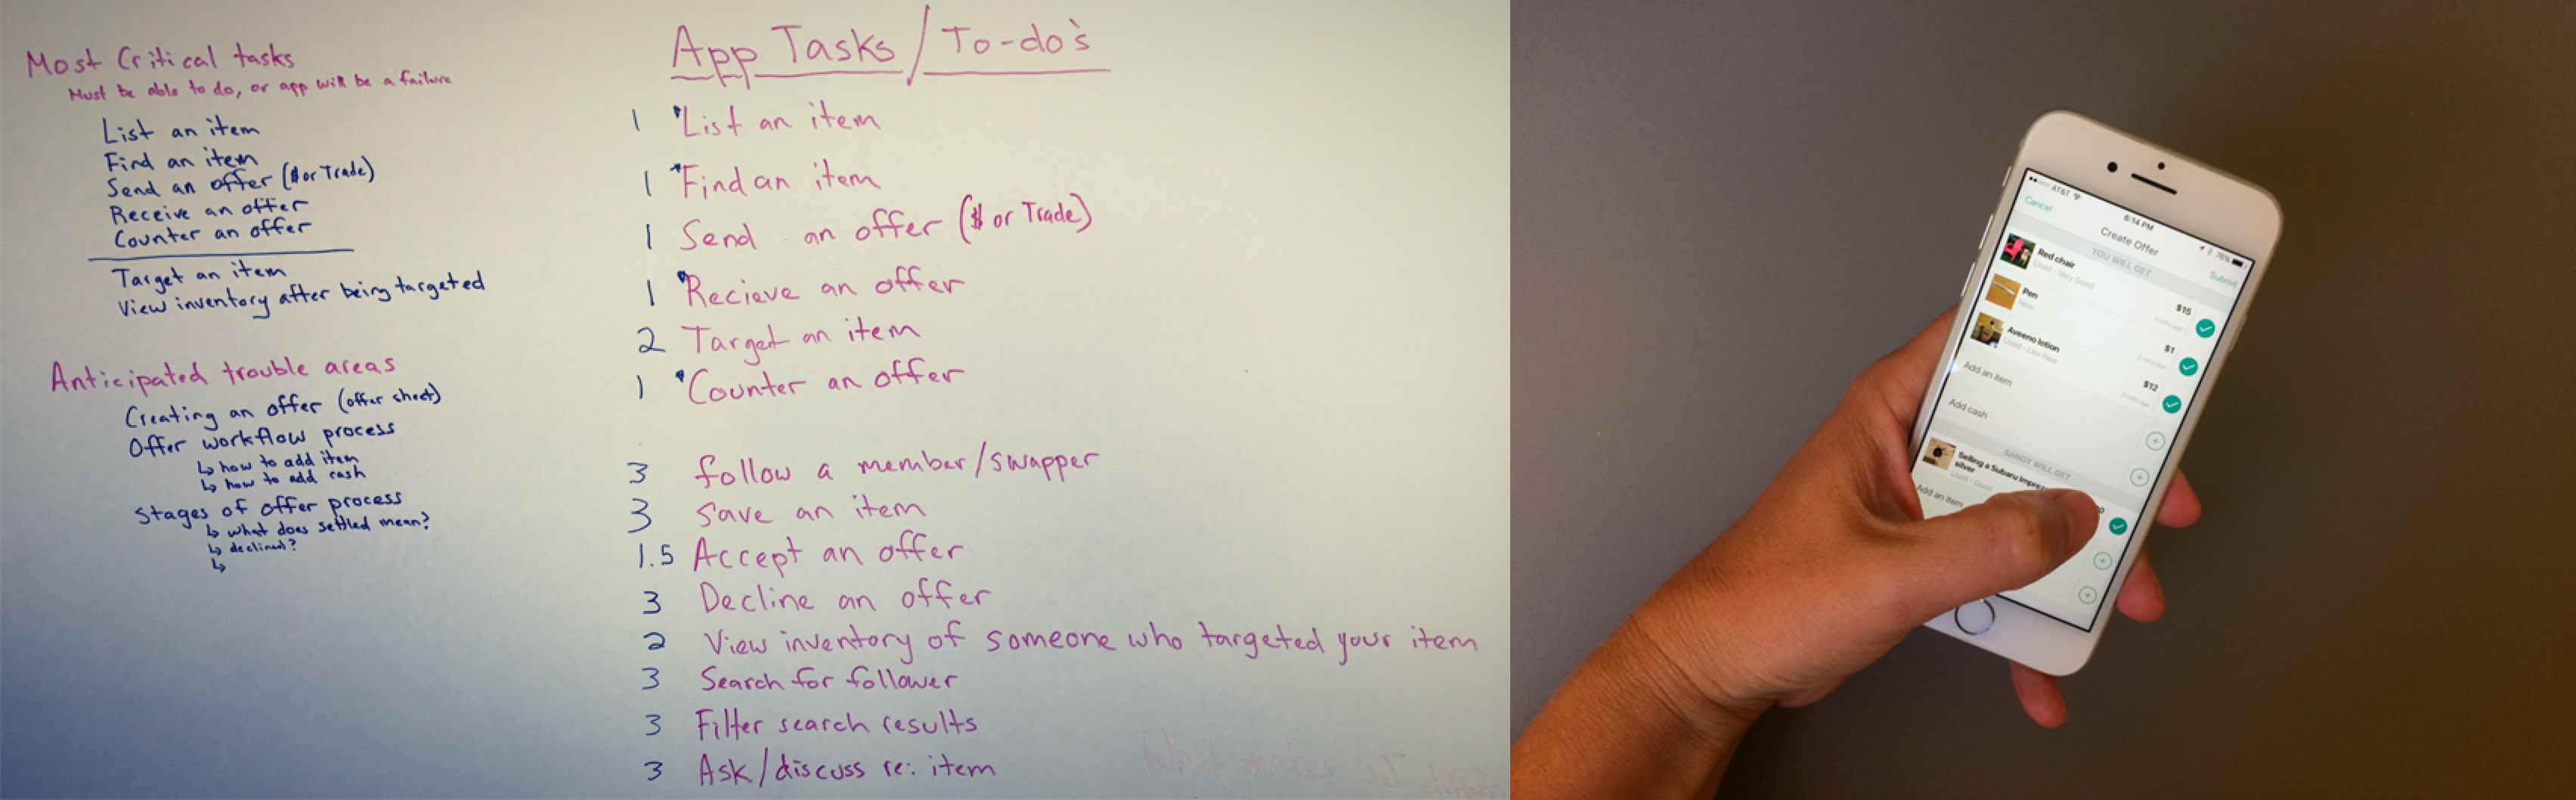 Most Critical tasks
Must be able to do, or app will be a failure
List an item
Find an item
Send an offer ($ or Trade)
Receive an offer
Counter an offer
Target an item
View inventory after being targeted
Anticipated trouble areas
Creating an offer (offer sheet)
Offer workflow process
↳ how to add item
↳ how to add cash
Stages of offer process
↳ what does settled mean?
↳ declined?
↳
App Tasks/To-do's
1 *List an item
1 *Find an item
1 Send an offer ($ or Trade)
1 *Recieve an offer
2 Target an item
1 *Counter an offer
3 follow a member/swapper
3 Save an item
1.5 Accept an offer
3 Decline an offer
2 View inventory of someone who targeted your item
3 Search for follower
3 Filter search results
3 Ask/discuss re: item
AT&T 6:14 PM 76%
Cancel Create Offer Submit
YOU WILL GET
Red chair $15
Used - Very Good
Pen $1
New
Aveeno lotion $12
Used - Like New
Add an item
Add cash
SANDY WILL GET
Selling a Subaru
silver
Used - Good
Add an item